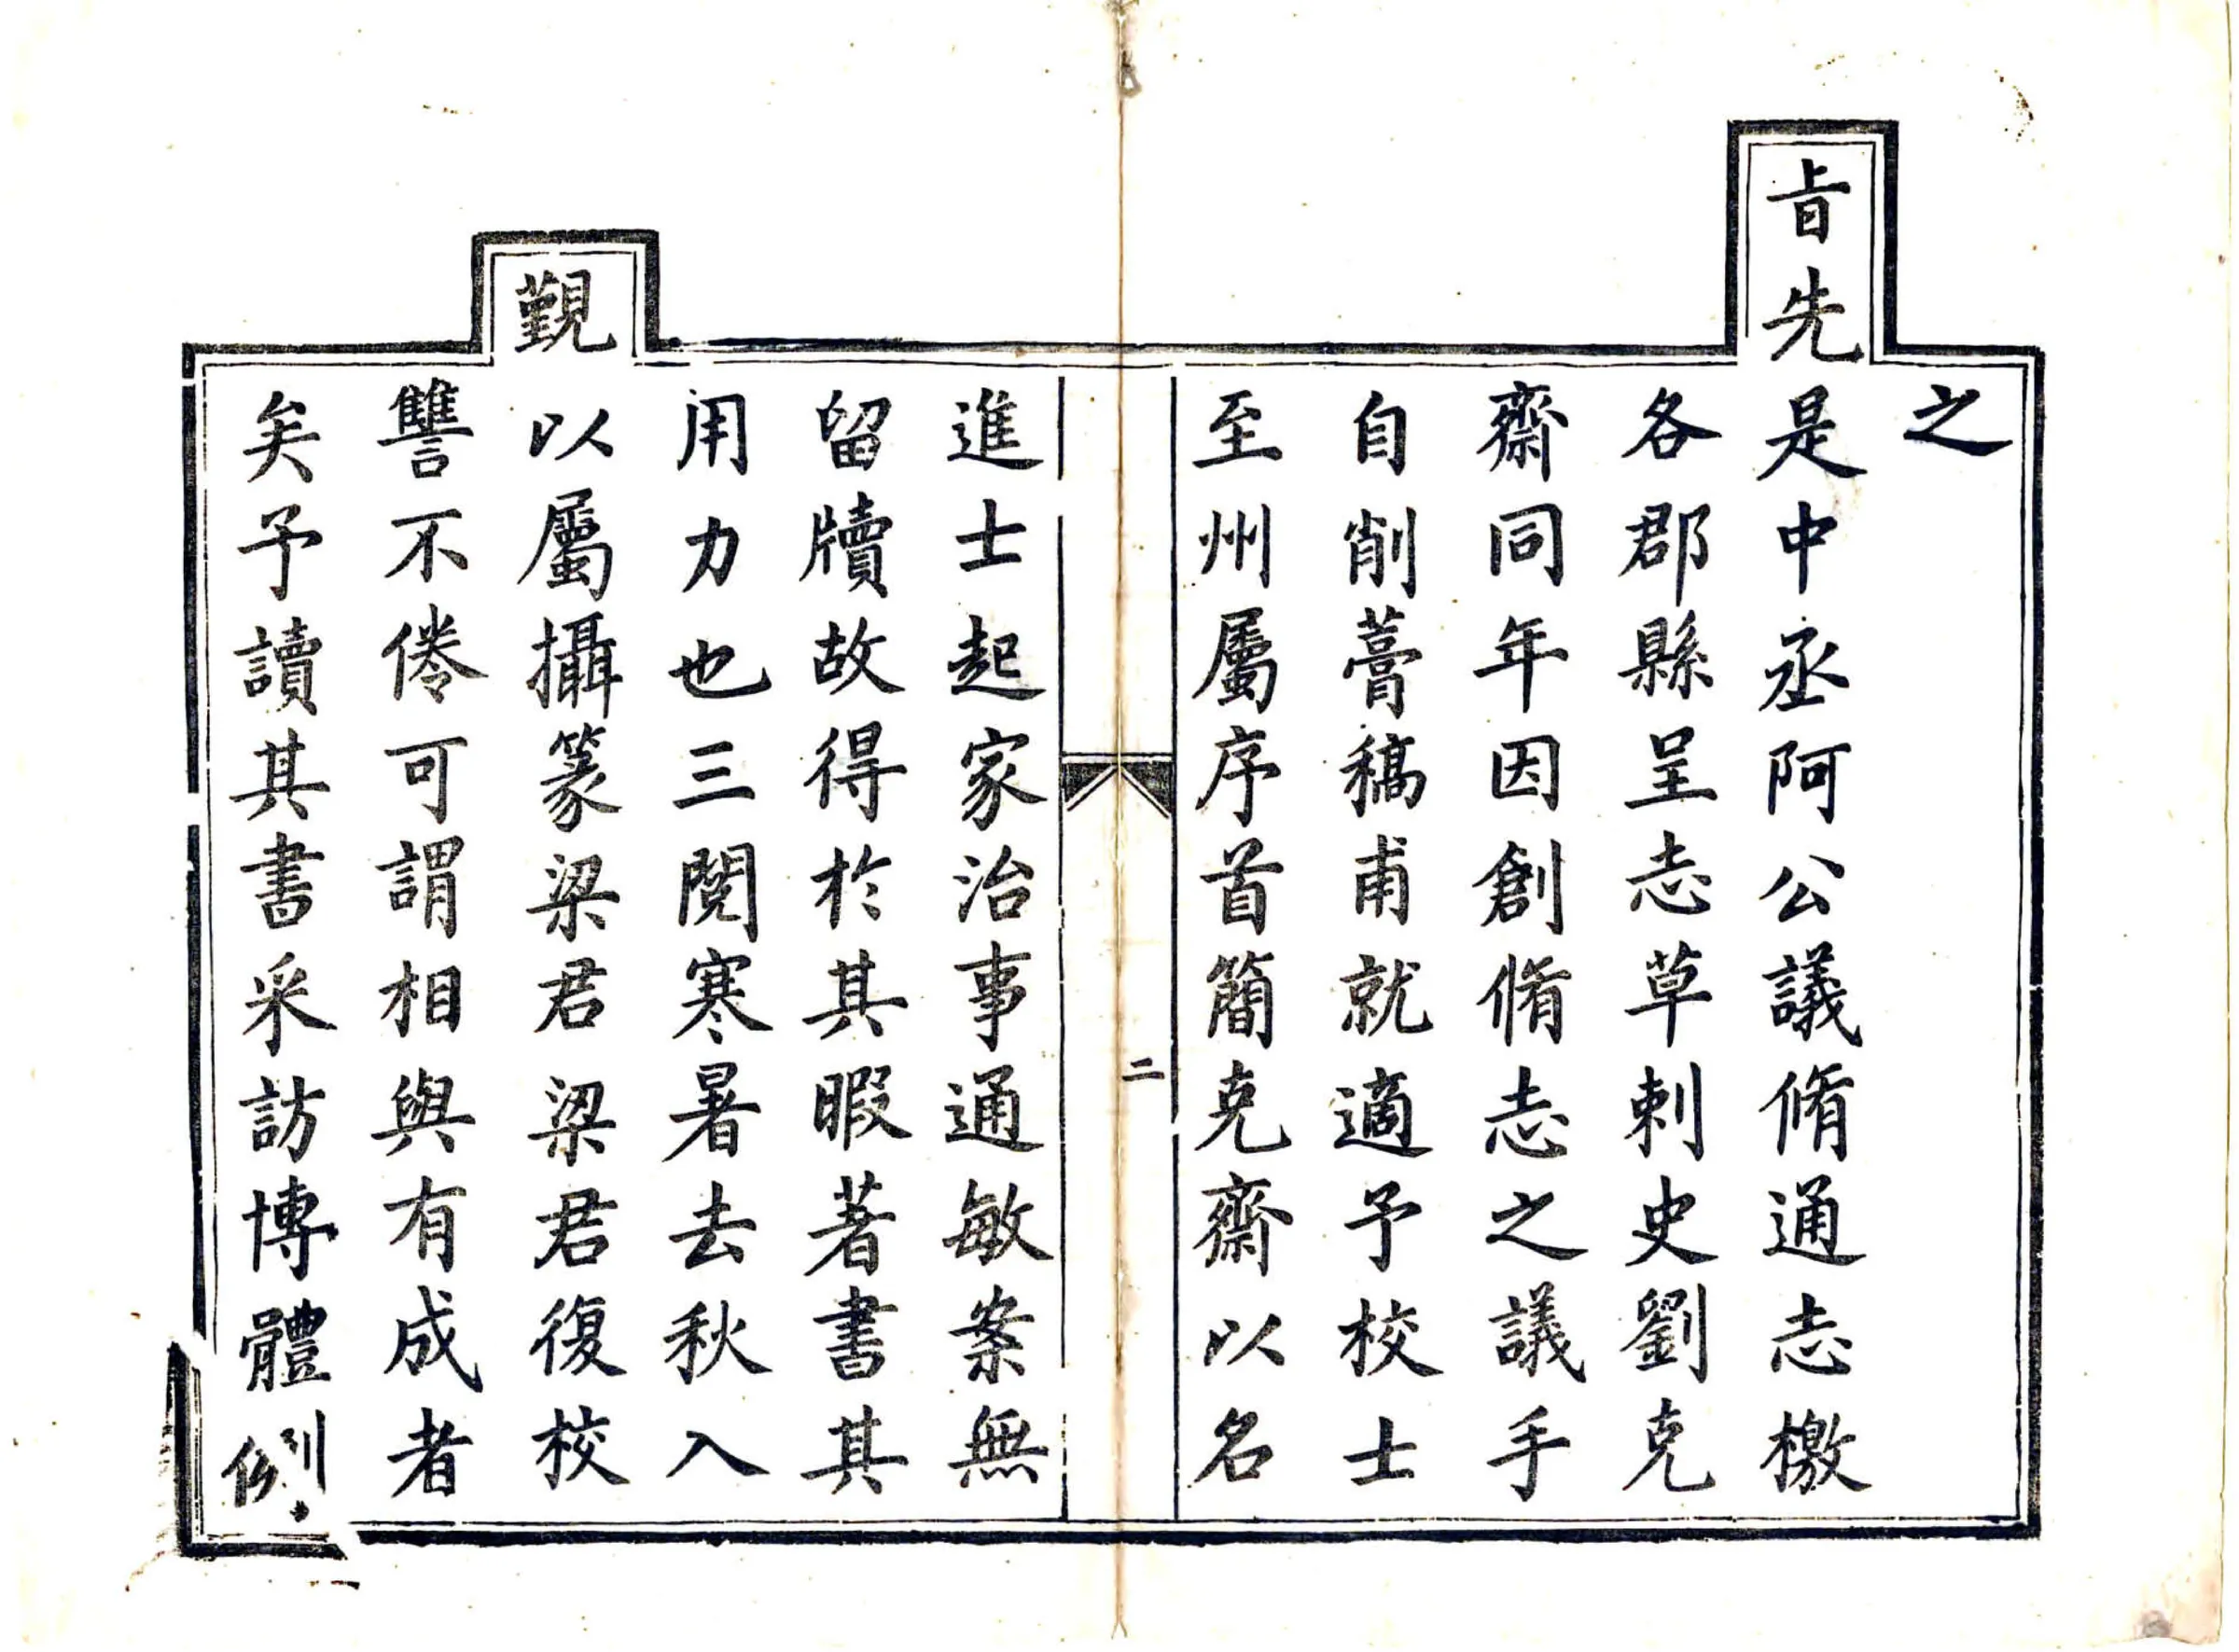 之
旨先是中丞阿公議脩通志檄
各郡縣呈志草刺史劉克
齋同年因創脩志之議手
自削藁稿甫就適予校士
至州屬序首簡克齋以名
二
進士起家治事通敏案無
留牘故得於其暇著書其
用力也三閱寒暑去秋入
覲以屬攝篆梁君梁君復校
讐不倦可謂相與有成者
矣予讀其書采訪博體例